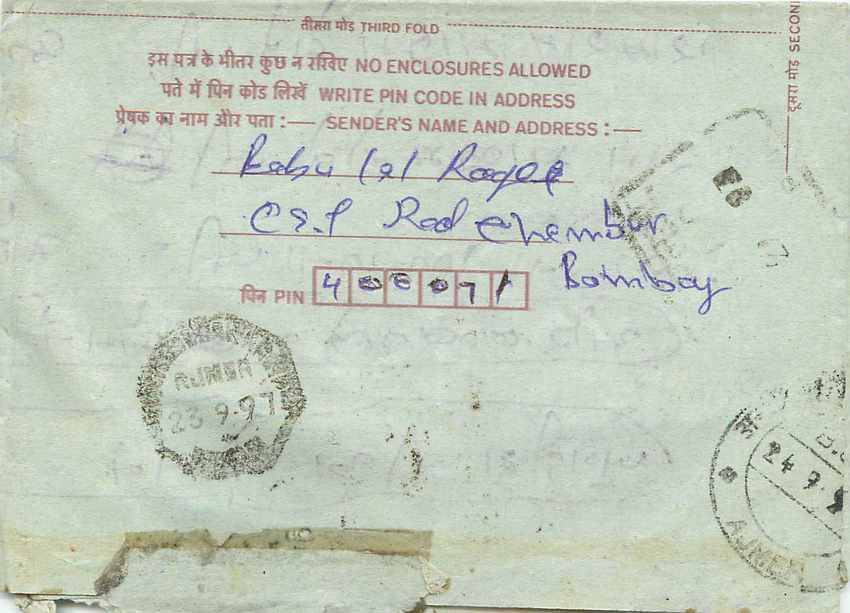 तीसरा मोड़ THIRD FOLD
दूसरा मोड़ SECON
इस पत्र के भीतर कुछ न रखिए NO ENCLOSURES ALLOWED
पते में पिन कोड लिखें WRITE PIN CODE IN ADDRESS
प्रेषक का नाम और पता :— SENDER'S NAME AND ADDRESS :—
Babu lal
Road Chembur
Bombay
पिन PIN 400071
AJMER
23 9.97
24 9.9
AJMER